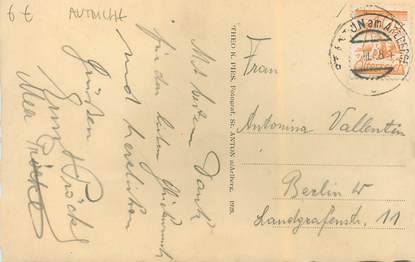 AUTRICHE
ST. ANTON am ARLBERG
Mit bestem Dank
für den lieben Glückwunsch
und herzlichen
Grüßen
Ernst
THEO K. PIES, Fotograf, St. ANTON a/Arlberg. 1928.
Frau
Antonina Vallentin
Berlin W
Landgrafenstr. 11